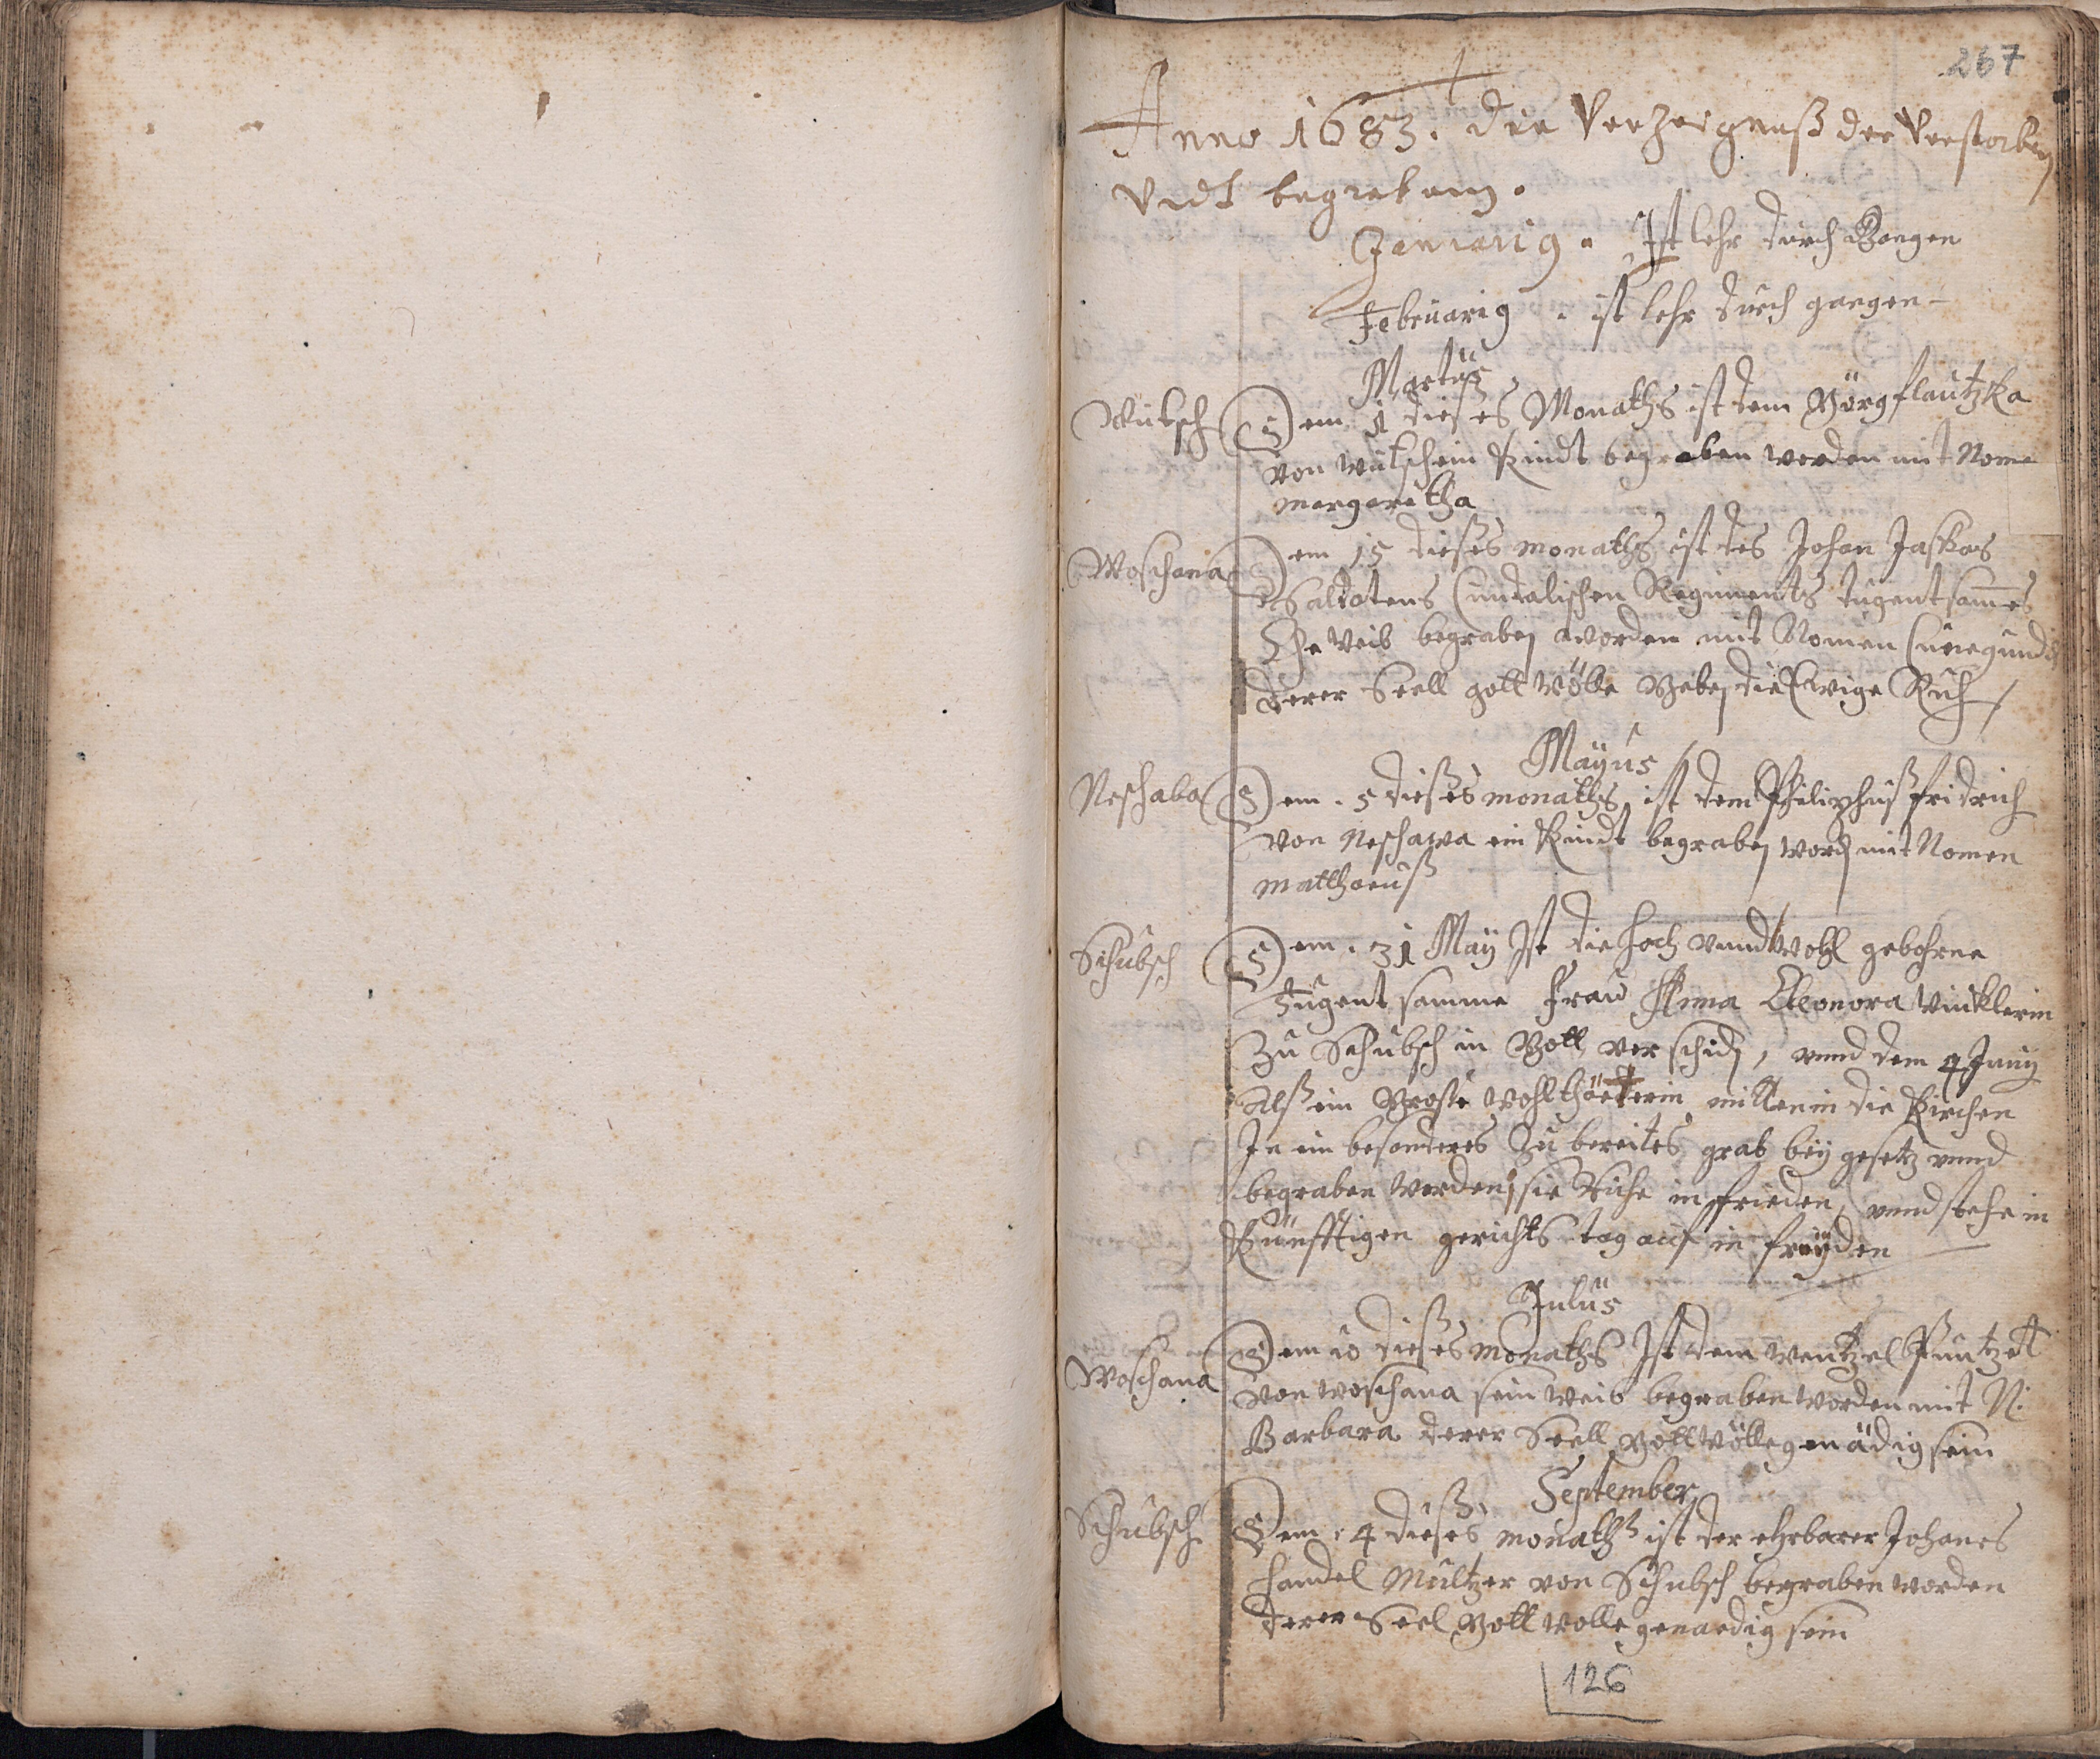 267
Anno 1683. die Verzeignuß der Verstorben
Vndt begrabenen.
Januarig. Ist lehr durch Gangen
Februarig. ist lehr durch gangen
Martius
Wutsch Dem 1 dieses Monaths ist dem Görg flautzka
von Wutsch ein Kindt begraben worden mit Nome
margaretha
Woschana Dem 15 dieses monaths ist des Johan Jaskas
Saldatens Regiments tugentsames
Eheweib begraben worden mit Nomen Cunegunda
derer Seell gott wölle Geben die Ewige Ruh
Mayus
Neschaba Dem 5 dieses monaths ist dem Philiphus fridrich
von Neschawa ein Kindt begraben word mit Nomen
matthaeuß
Schubsch Dem 31 May Ist die hoch unnd Wohl gebohrne
Tugentsamme Fraw Anna Eleonora Vinklerin
zu Schubsch in Gott verschid, unnd dem 4 Juny
Alß ein Große Wohlthäterin mitten in die Kirchen
In ein besonderes zu bereites grab bey gesetz unnd
begraben Worden, sie Ruhe in frieden, unnd stehe in
Künfftigen gerichts tag auf in freyden
Julius
Woschana Dem 10 dieses monaths Ist dem Wentzel
von woschana sein Weib begraben worden mit N.
Barbara derer Seell Gott wölle genädig sein
September
Schubsch Dem 4 dieses monaths ist der ehrbarer Johanes
Handel Mültzer von Schubsch begraben worden
derer Seel Gott wolle genaedig sein
126